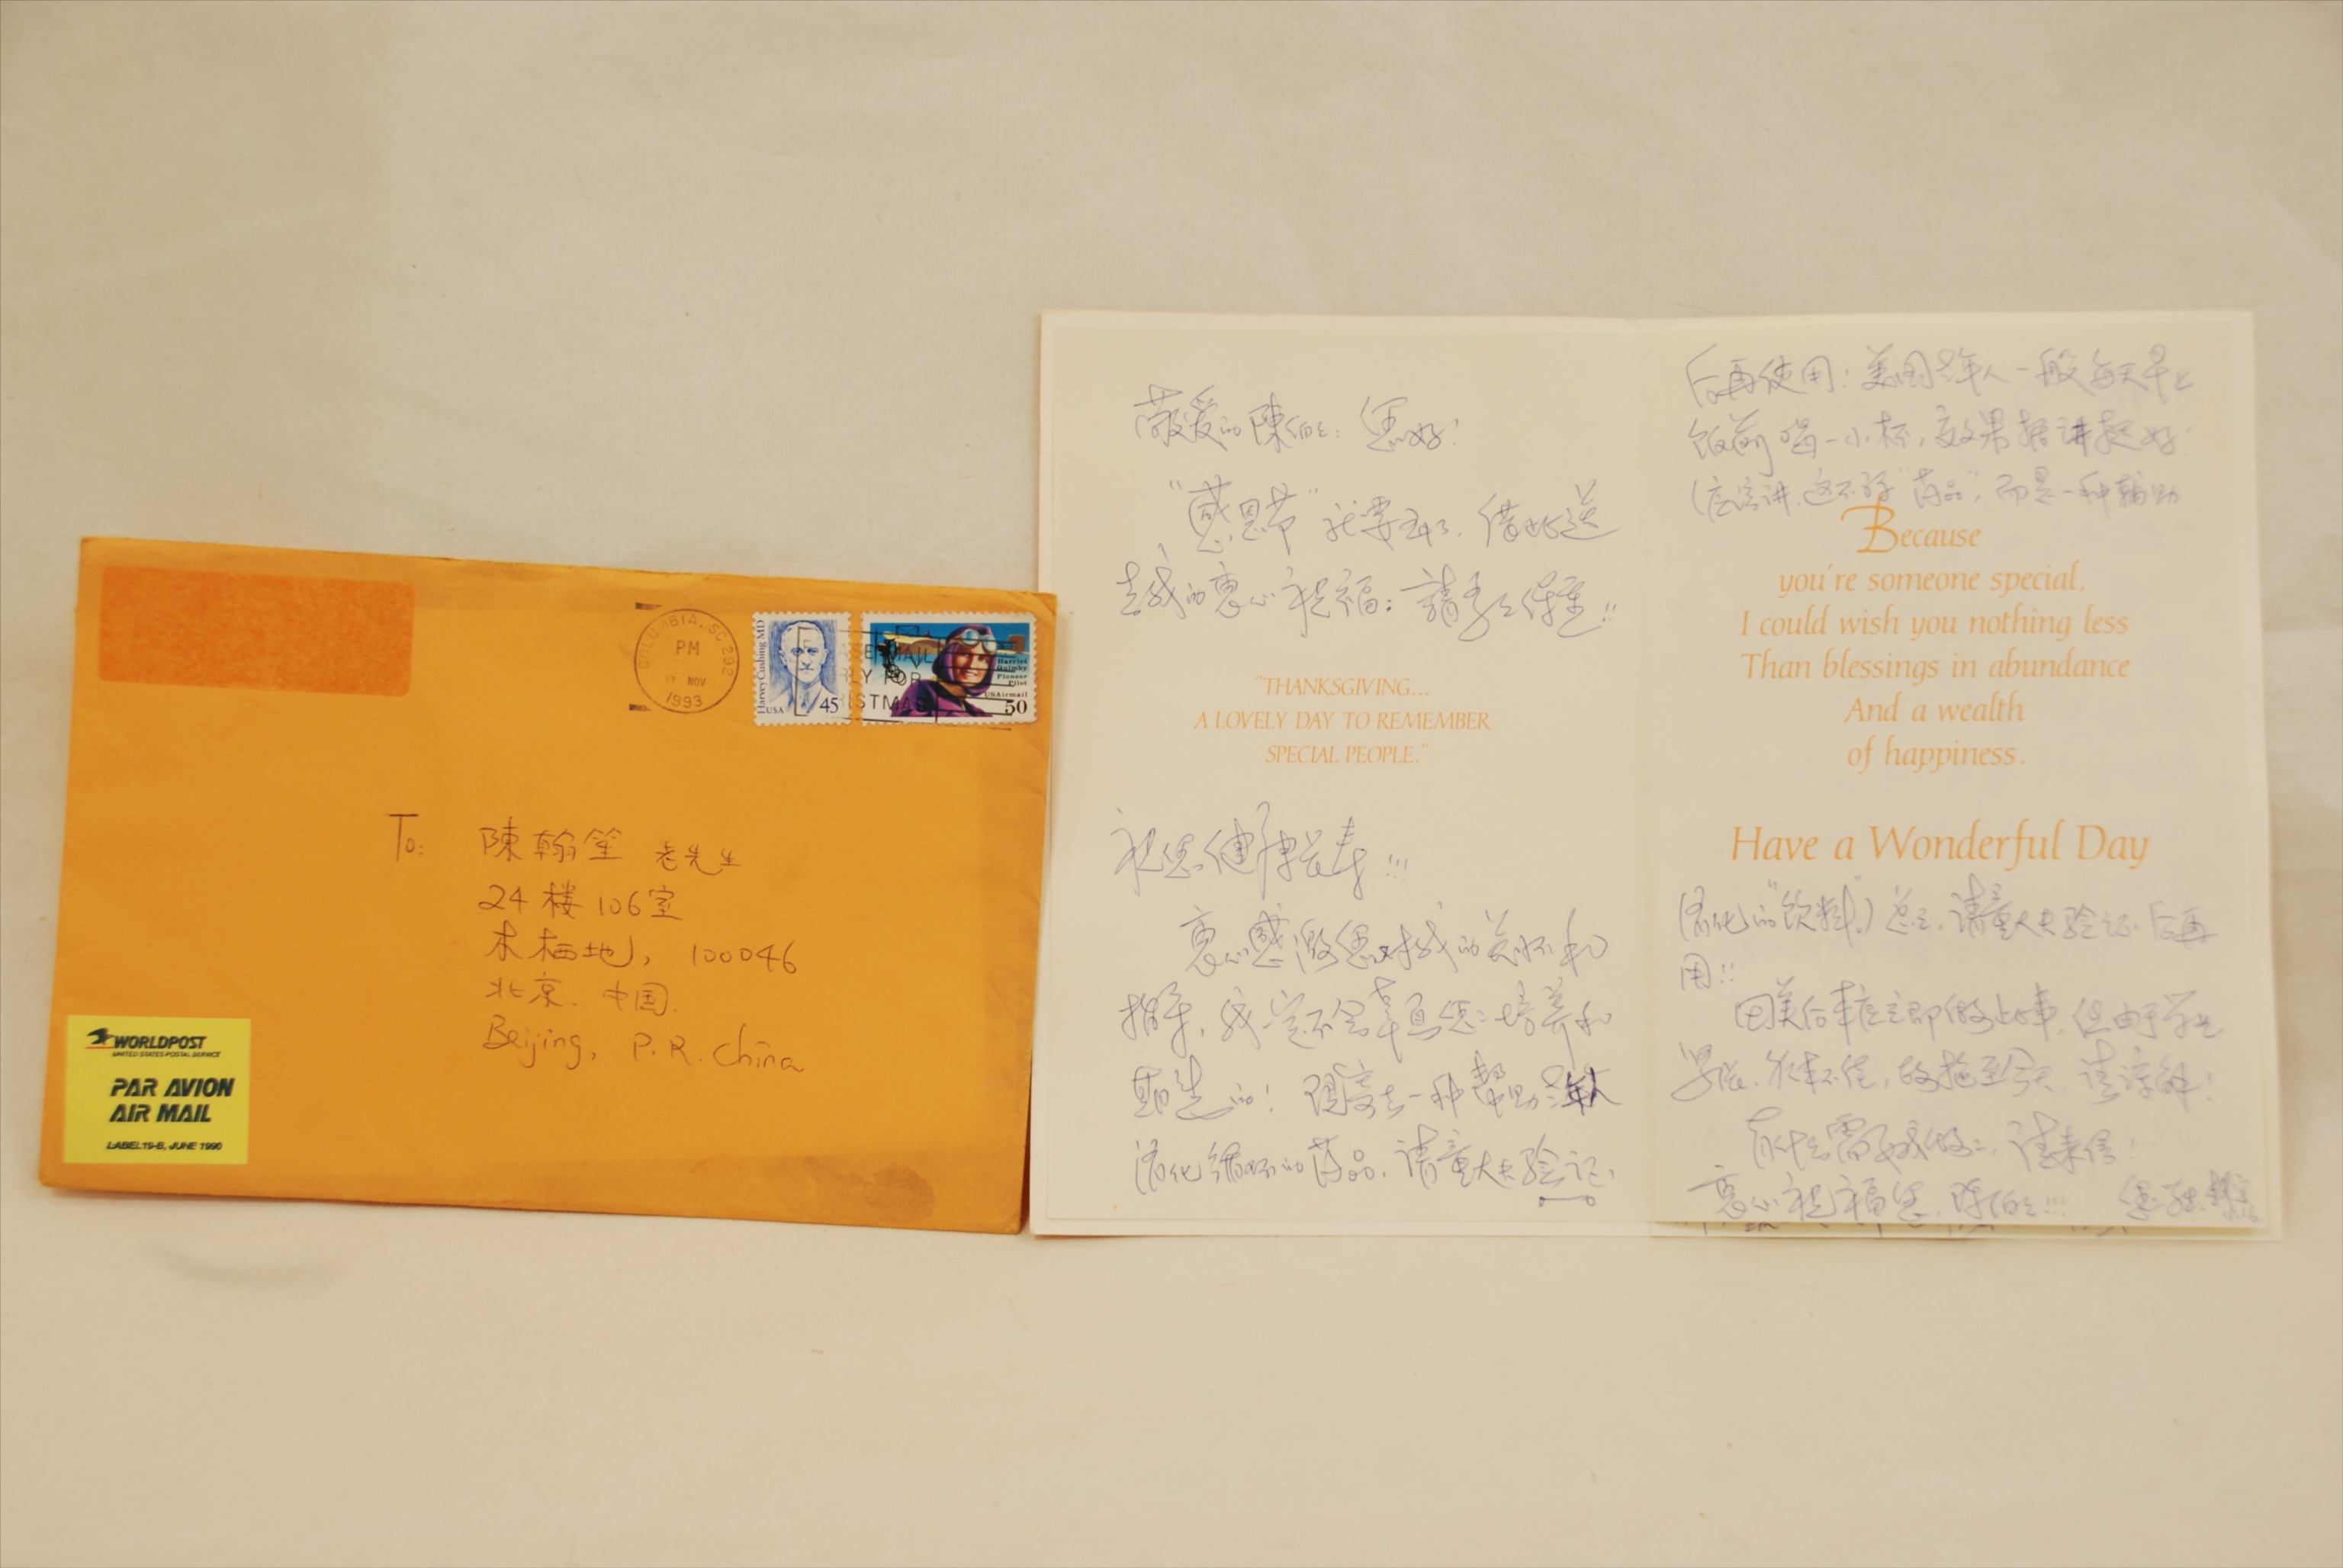 COLUMBIA, SC 292
PM
NOV
1993
Harvey Cushing MD
USA 45
Harriet
Quimby
Pioneer
Pilot
USAirmail
50
MAIL
FOR
To: 陳翰笙 老先生
24 楼 106室
木栖地, 100046
北京. 中国.
Beijing, P.R. China
WORLDPOST
UNITED STATES POSTAL SERVICE
PAR AVION
AIR MAIL
LABEL 19-B, JUNE 1990
敬爱的陳伯伯: 您好!
"感恩节"就要到了, 借此送
去我的衷心祝福: 請多多保重!!
"THANKSGIVING...
A LOVELY DAY TO REMEMBER
SPECIAL PEOPLE."
祝您健康长寿!!!
衷心感激您对我的关怀和
指导, 我一定不会辜负您的培养和
期望的! 随寄去一种帮助老年人
消化循环的药品, 请童大夫验证,
后再使用: 美国老年人一般每天早上
饭前喝一小杯, 效果据讲挺好!
(应该讲, 这不算"药品", 而是一种辅助
Because
you're someone special,
I could wish you nothing less
Than blessings in abundance
And a wealth
of happiness.
Have a Wonderful Day
消化的"饮料".) 总之, 请童大夫验证后再
用!!
回美后本应立即做此事, 但由于
请谅解!
有什么需要我做的, 请来信!
衷心祝福您, 陈伯伯!!!